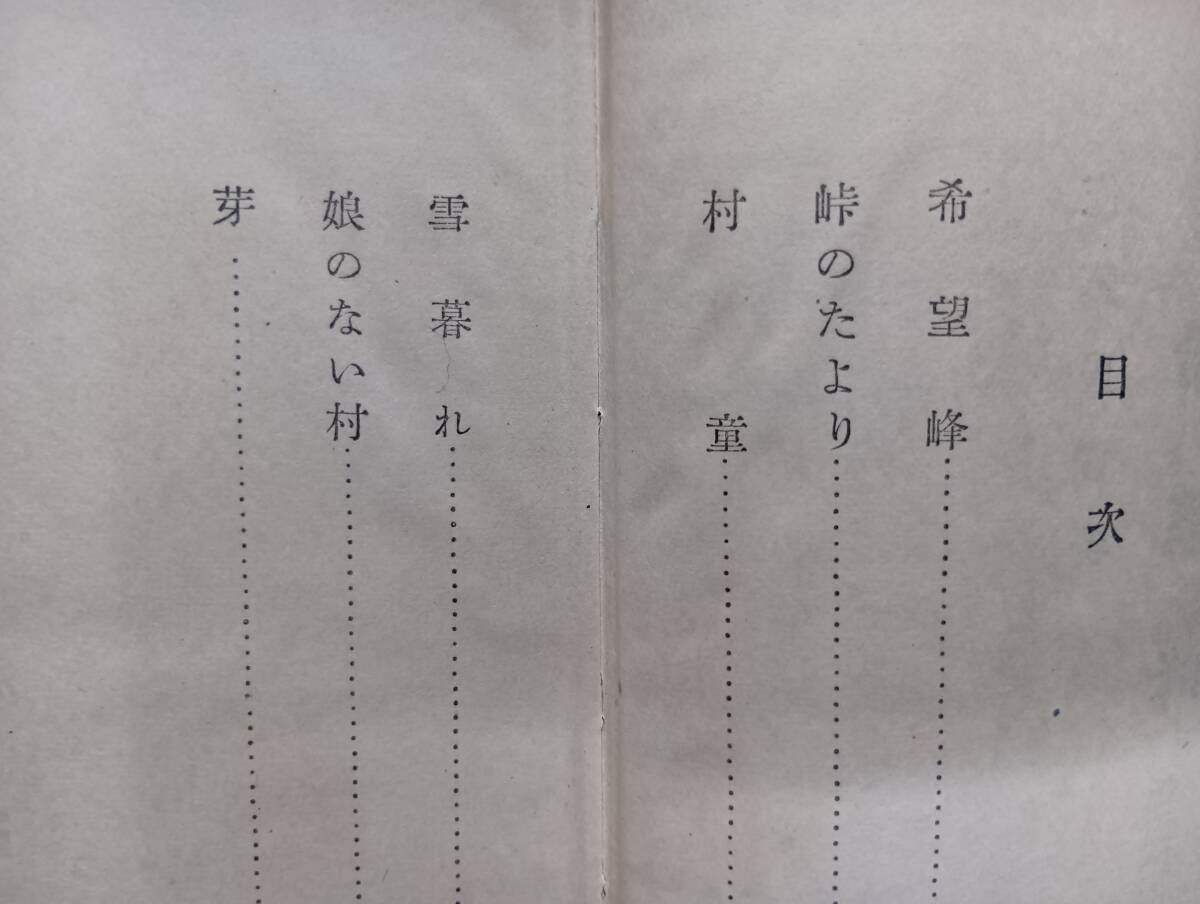 目次
希望峰………………
峠のたより………………
村童………………
雪暮れ………………
娘のない村………………
芽………………